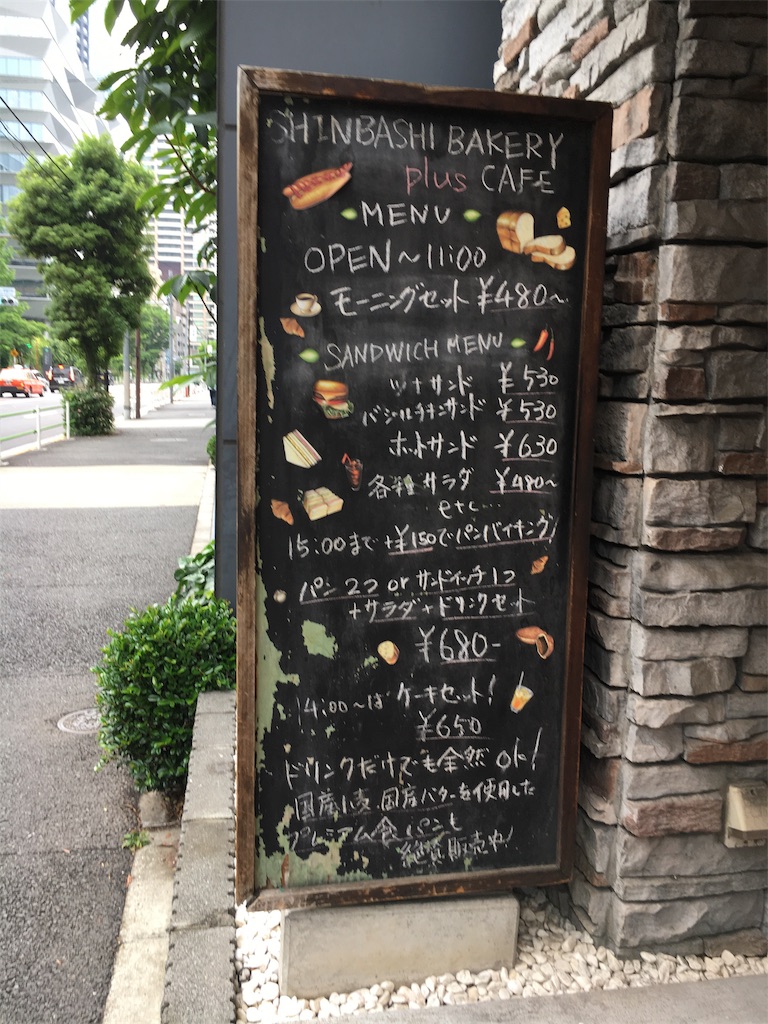 SHINBASHI BAKERY
plus CAFE
MENU
OPEN～11:00
モーニングセット ¥480～
SANDWICH MENU
ツナサンド ¥530
バジルチキンサンド ¥530
ホットサンド ¥630
各種サラダ ¥480～
etc...
15:00まで+¥150でパンバイキング!
パン2つ or サンドイッチ1つ
+サラダ+ドリンクセット
¥680-
14:00～は ケーキセット!
¥650
ドリンクだけでも全然OK!
国産小麦 国産バターを使用した
プレミアム食パンも
絶賛販売中!